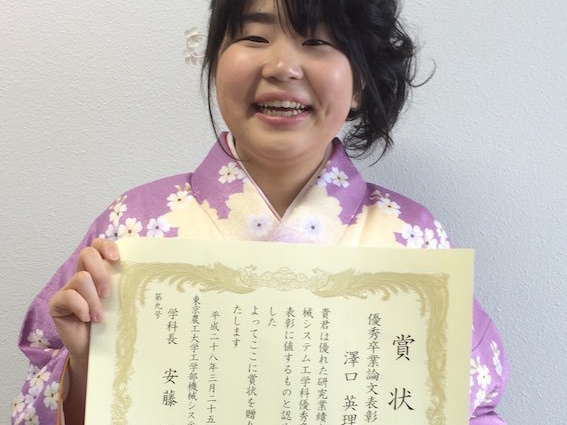 賞状
優秀卒業論文表彰
澤口 英理
貴君は優れた研究業績
械システム工学科優秀
表彰に値するものと認
した
よってここに賞状を贈り
たします
平成二十八年三月二十五
東京農工大学工学部機械システ
学科長 安藤
第九号